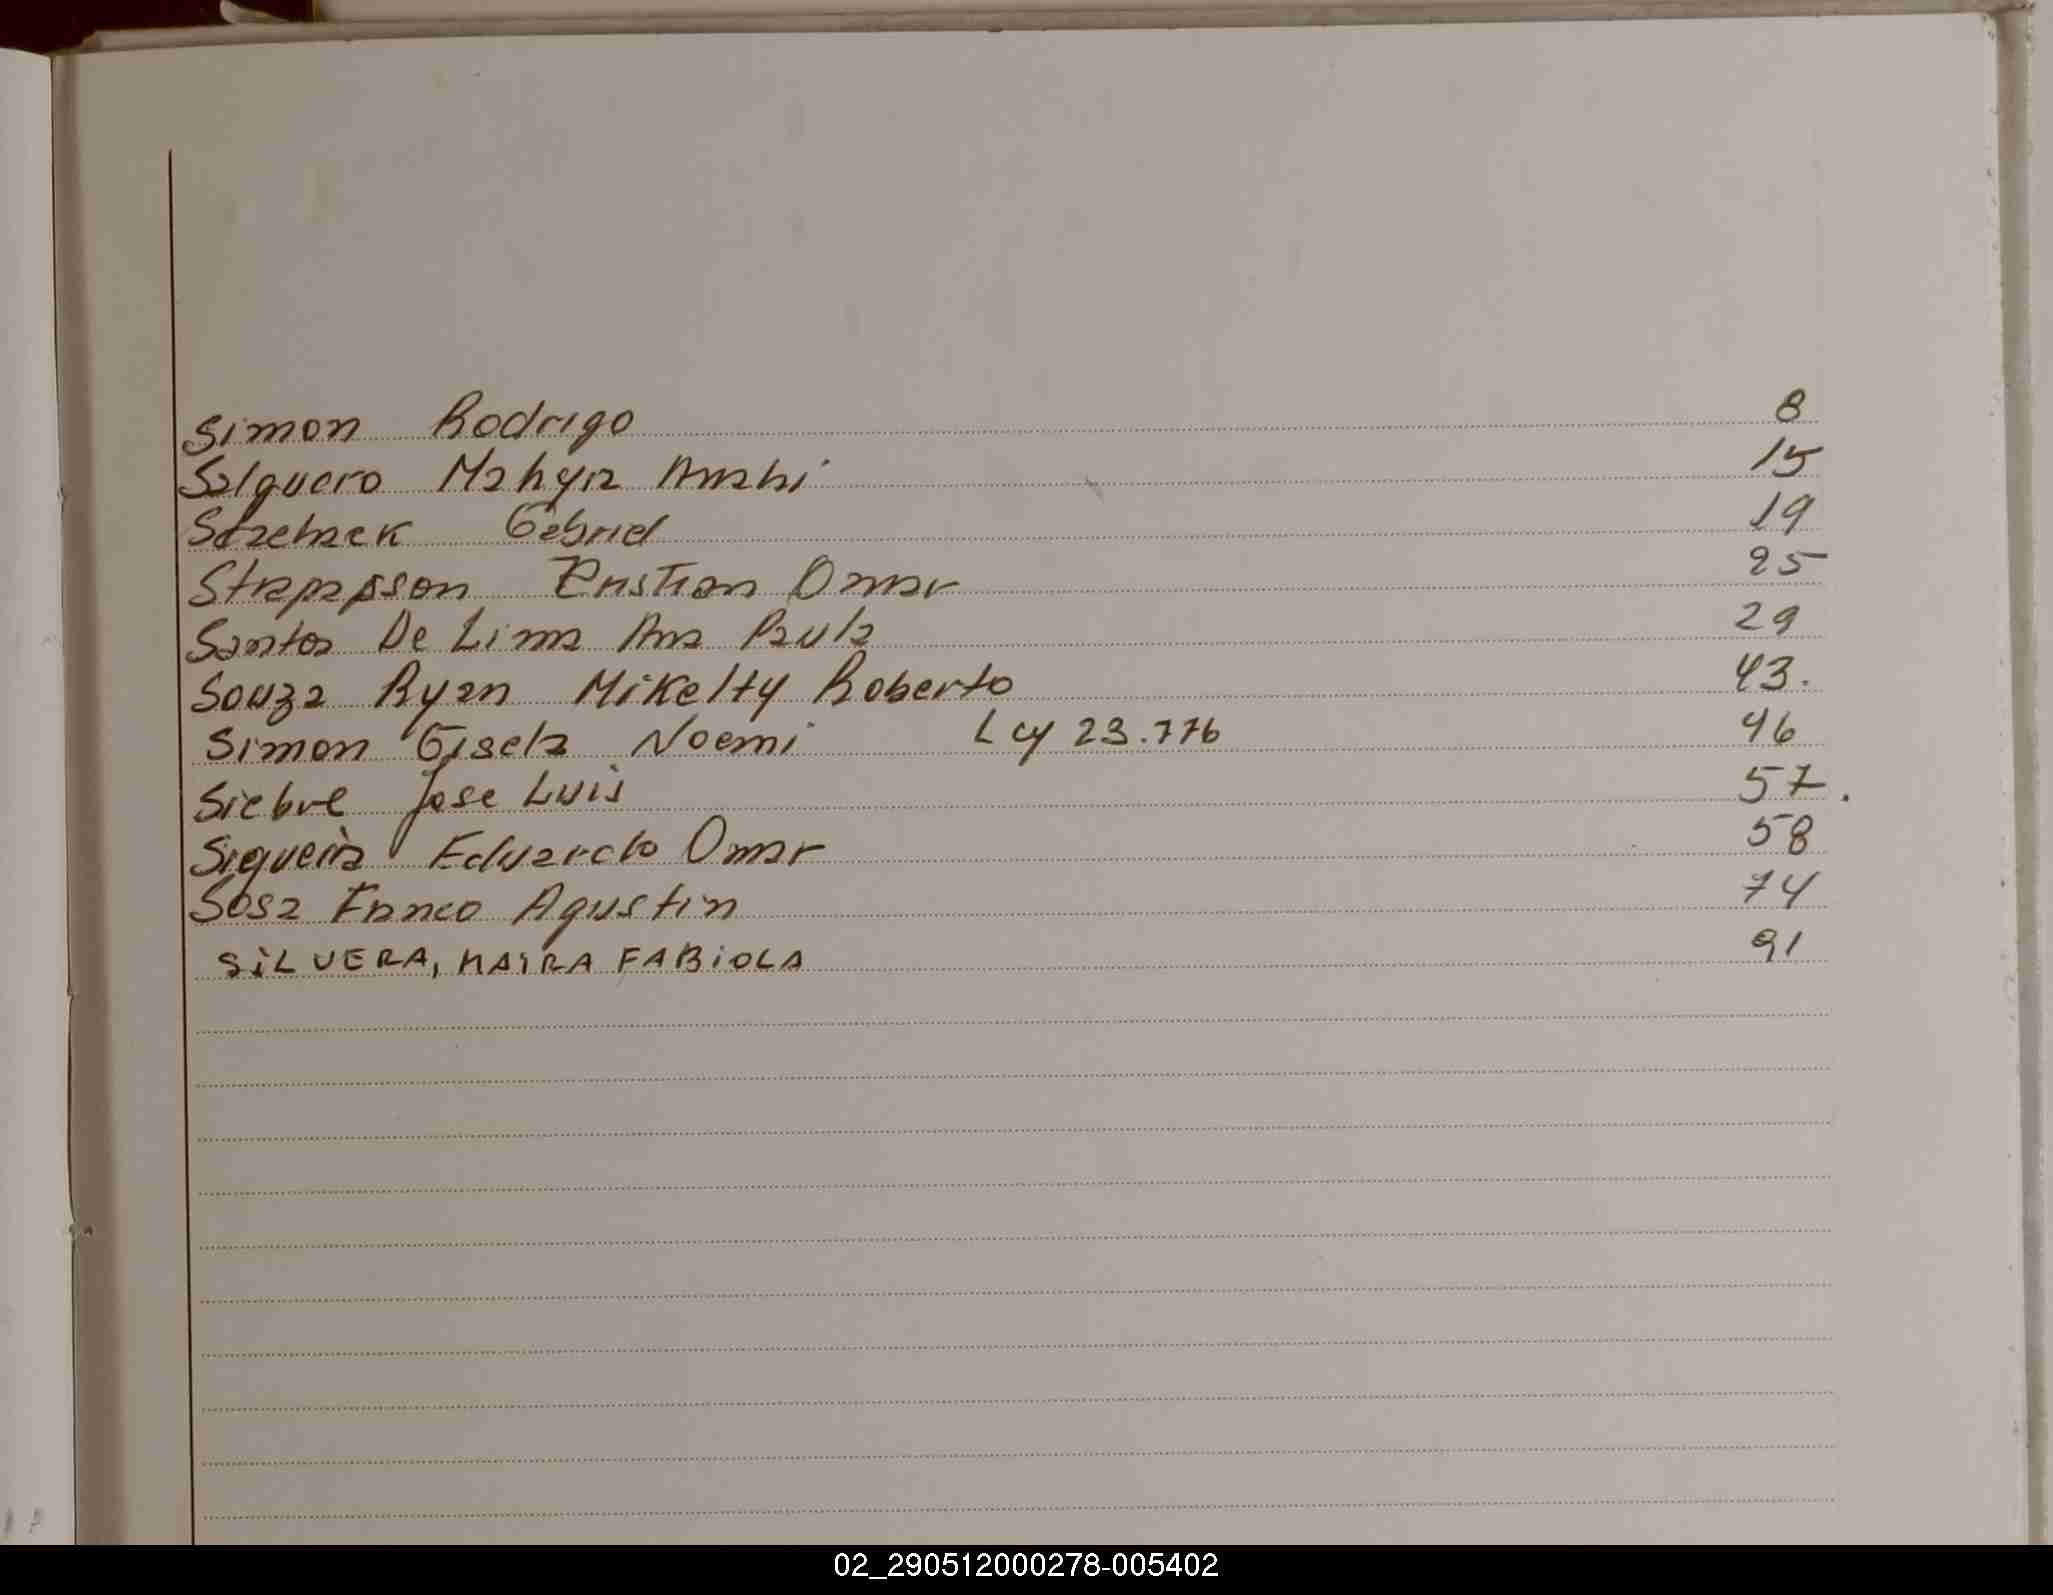 Simon Rodrigo 8
Salguero Mahyra Anahi 15
Gabriel 19
Cristian Omar 25
Santos De Lima Ana Paula 29
Souza Ryan Mikelty Roberto 43.
Simon Gisela Noemi Ley 23.776 46
Siebre Jose Luis 57.
Siqueira Eduardo Omar 58
Sosa Franco Agustin 74
SILVERA, MAIRA FABIOLA 91
02_290512000278-005402